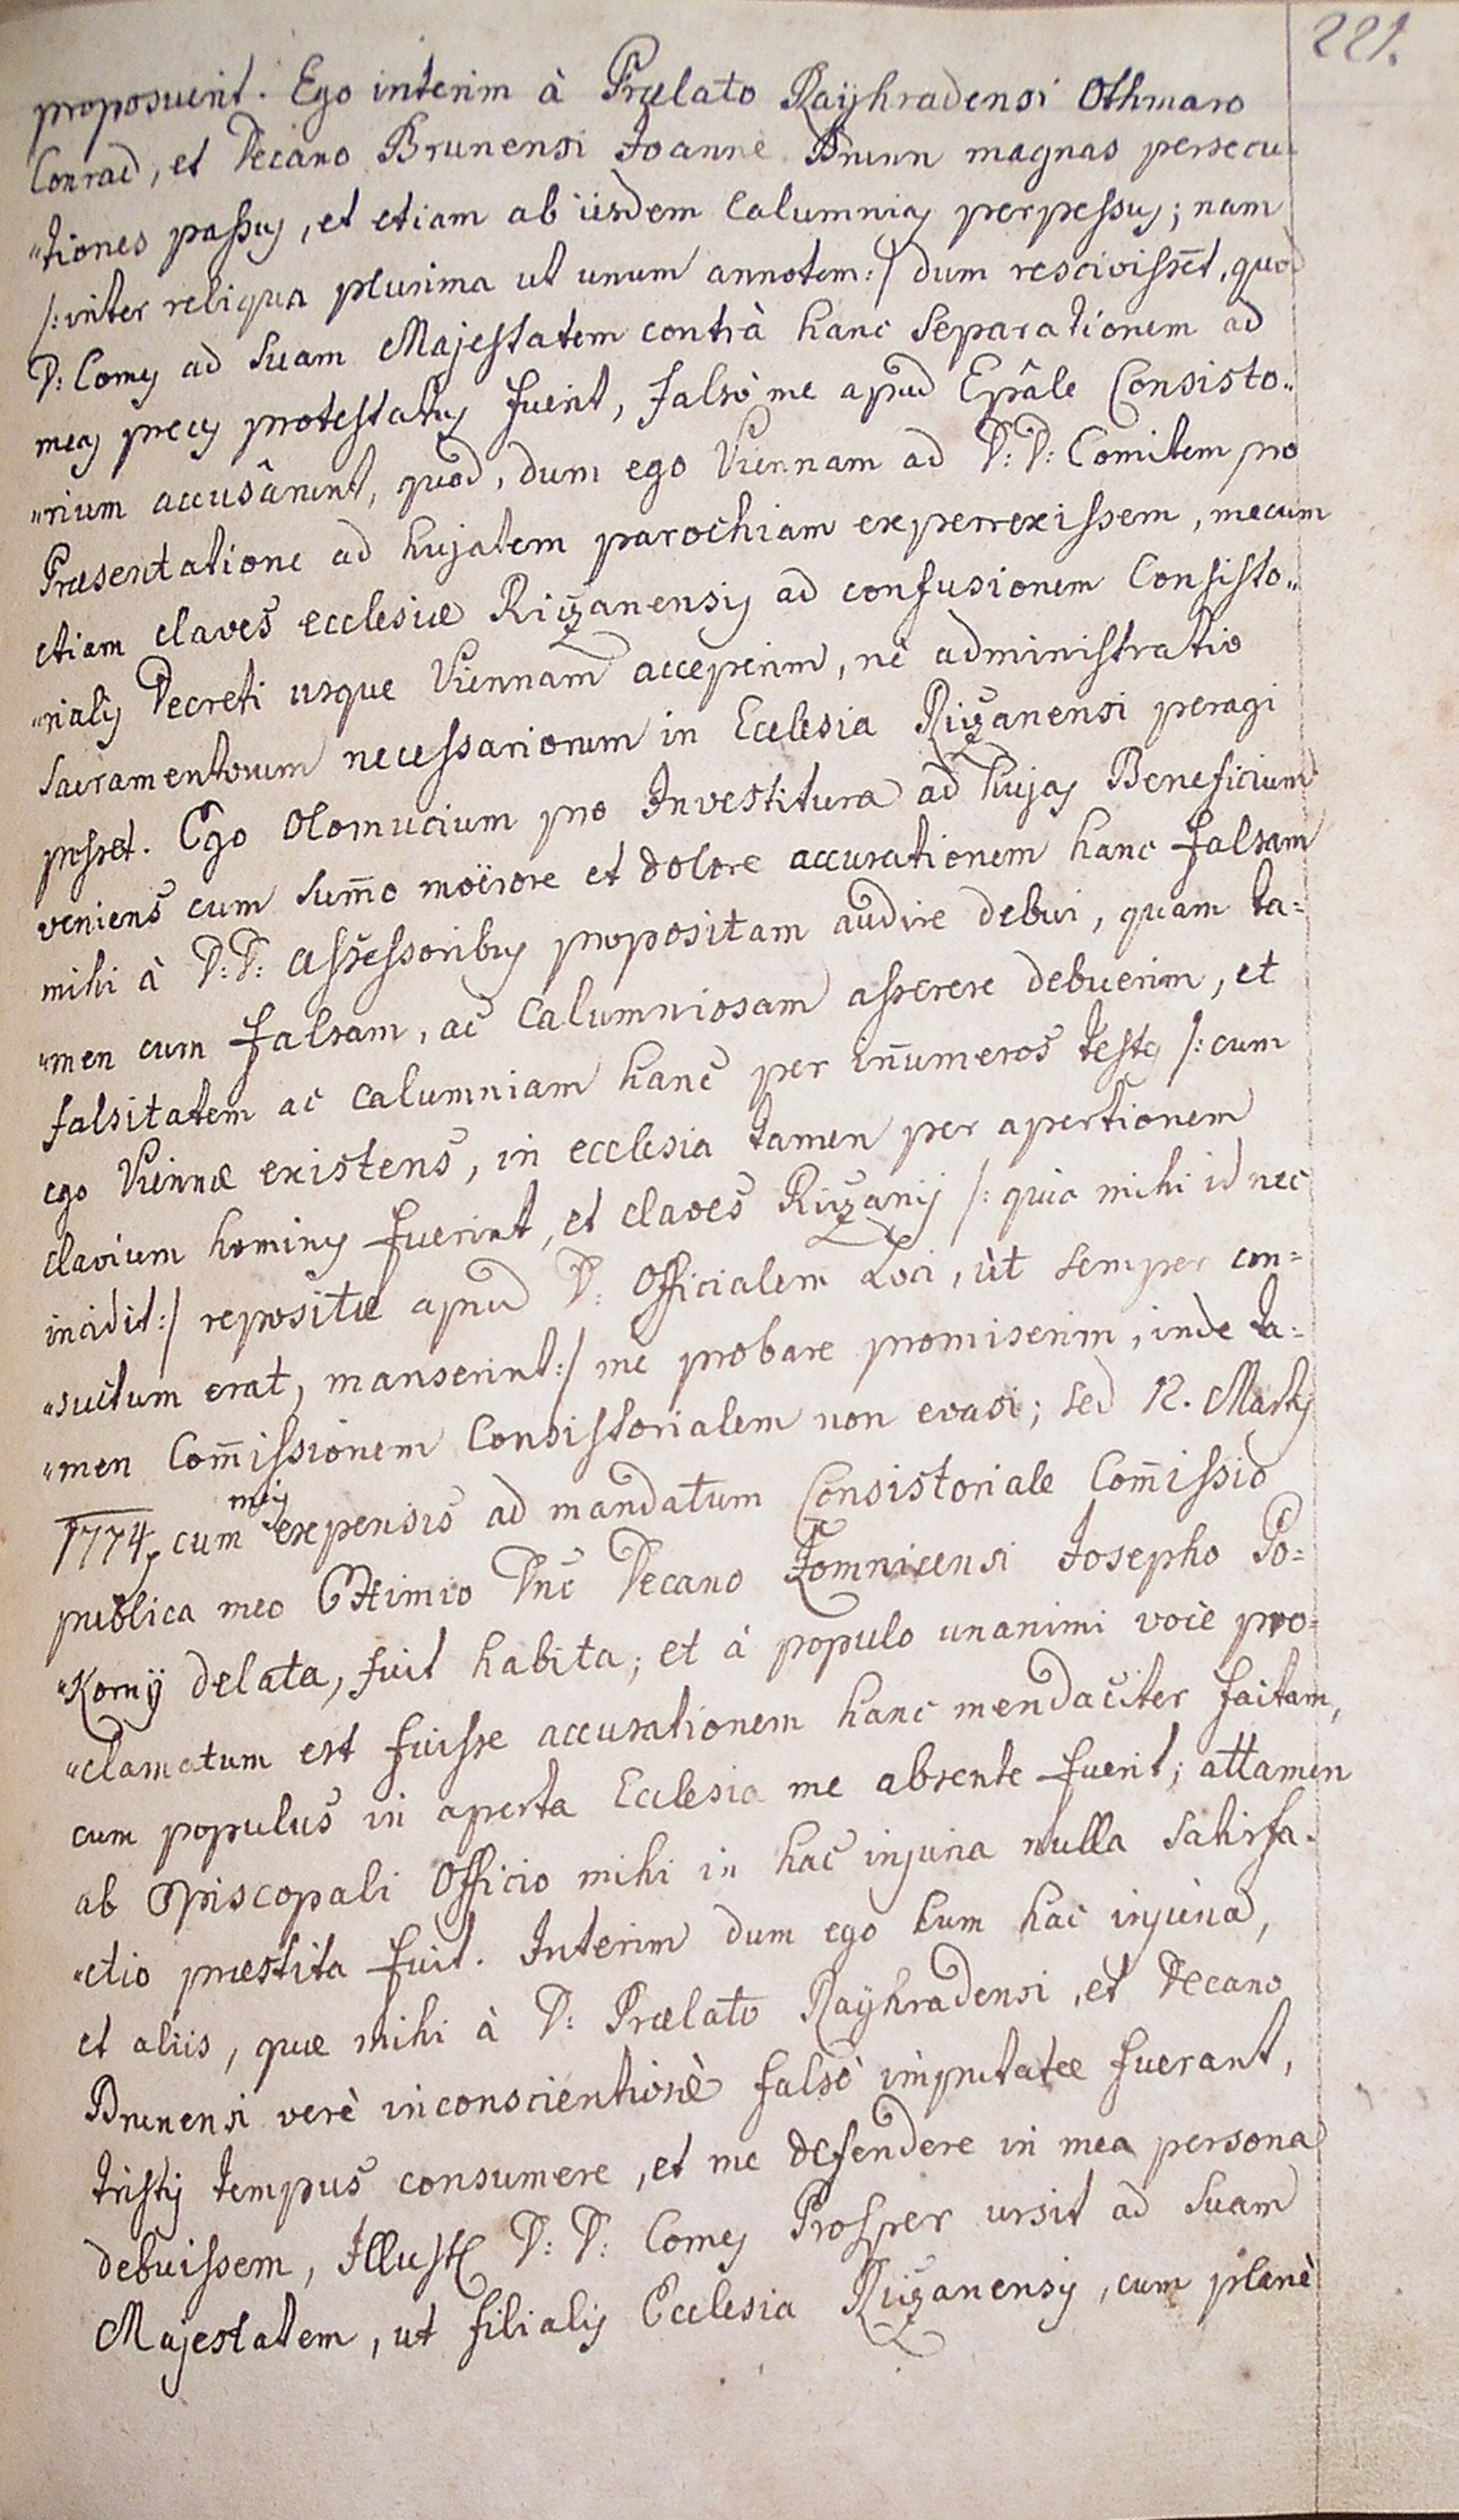 221.
proposuerit. Ego interim à Prælato Rayhradensi Othmaro
Conrad, et Decano Brunensi Joanne Brunn magnas persecu„
„tiones passus, et etiam ab iisdem calumnias perpessus; nam
/: inter reliqua plurima ut unum annotem :/ dum rescivissēt, quod
D: Comes ad suam Majestatem contrà hanc separationem ad
meas preces protestatus fuerit, falsò me apud Epâle Consisto„
„rium accusârunt, quod, dum ego Viennam ad D: D: Comitem pro
Præsentatione ad hujatem parochiam experrexissem, mecum
etiam claves ecclesiæ Riczanensis ad confusionem Consisto„
„rialis Decreti usque Viennam acceperim, nè administratio
Sacramentorum necessariorum in Ecclesia Riczanensi peragi
posset. Ego Olomucium pro Investitura ad hujas Beneficium
veniens cum sum̄o moërore et dolore accusationem hanc falsam
mihi à D: D: assessoribus propositam audire debui, quam ta=
„men cum falsam, ac calumniosam asserere debuerim, et
falsitatem ac calumniam hanc per in̄umeros testes /: cum
ego Viennæ existens, in ecclesia tamen per apertionem
clavium homines fuerint, et claves Riczanij /: quia mihi id nec
incidit :/ repositæ apud D: Officialem Loci, ùt semper con=
„suetum erat, manserint :/ me probare promiserim, inde ta=
„men Com̄issionem Consistorialem non evasi; sed 12. Martij
1774, cum meis expensis ad mandatum Consistoriale Com̄issio
publica meo Ottimio Dnē Decano Lomnicensi Josepho Po=
„korny delata, fuit habita; et à populo unanimi voce pro=
„clamatum est fuisse accusationem hanc mendaciter factam,
cum populus in aperta Ecclesia me absente fuerit; attamen
ab Episcopali Officio mihi in hac injuria nulla satisfa„
„ctio præstita fuit. Interim dum ego cum hac injuria,
et aliis, quæ mihi à D: Prælato Rayhradensi, et Decano
Brunensi verè inconscientiosè falsò imputatæ fuerant,
tristis tempus consumere, et me defendere in mea persona
debuissem, Illust D: D: Comes Prosper ursit ad suam
Majestatem, ut filialis Ecclesia Riczanensis, cum planè